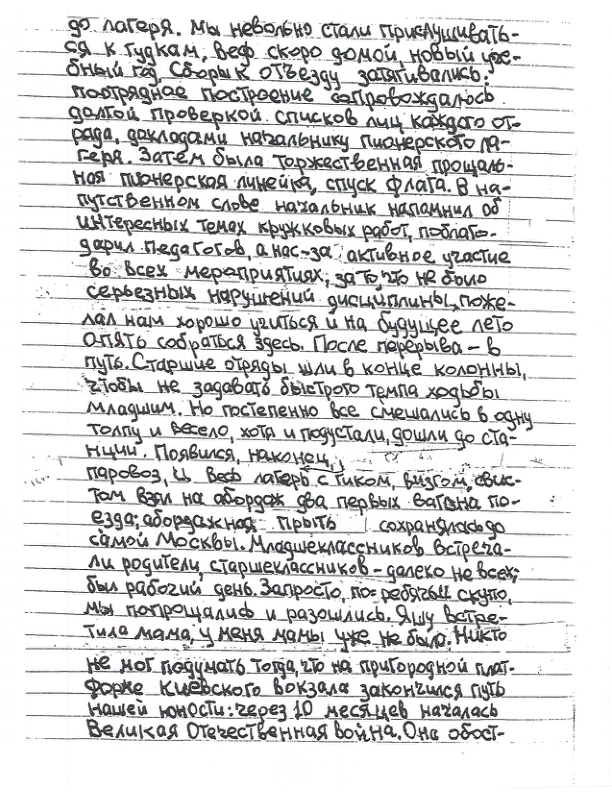 до лагеря. Мы невольно стали прислушивать-
ся к гудкам, ведь скоро домой, новый уче-
бный год. Сборы к отъезду затягивались:
поотрядное построение сопровождалось
долгой проверкой списков лиц каждого от-
ряда, докладами начальнику пионерского ла-
геря. Затем была торжественная прощаль-
ная пионерская линейка, спуск флага. В на-
путственном слове начальник напомнил об
интересных темах кружковых работ, поблаго-
дарил педагогов, а нас-за активное участие
во всех мероприятиях, за то, что не было
серьезных нарушений дисциплины, поже-
лал нам хорошо учиться и на будущее лето
опять собраться здесь. После перерыва – в
путь. Старшие отряды шли в конце колонны,
чтобы не задавать быстрого темпа ходьбы
младшим. Но постепенно все смешались в одну
толпу и весело, хотя и подустали, дошли до ста-
нции. Появился, наконец,
паровоз, и весь лагерь с гиком, визгом, свис-
том взял на абордаж два первых вагона по-
езда; абордажная прыть сохранялась до
самой Москвы. Младшеклассников встреча-
ли родители, старшеклассников – далеко не всех;
был рабочий день. Запросто, по-ребячьи скупо,
мы попрощались и разошлись. Яшу встре-
тила мама, у меня мамы уже не было. Никто
не мог подумать тогда, что на пригородной плат-
форме Киевского вокзала закончился путь
нашей юности: через 10 месяцев началась
Великая Отечественная война. Она обост-